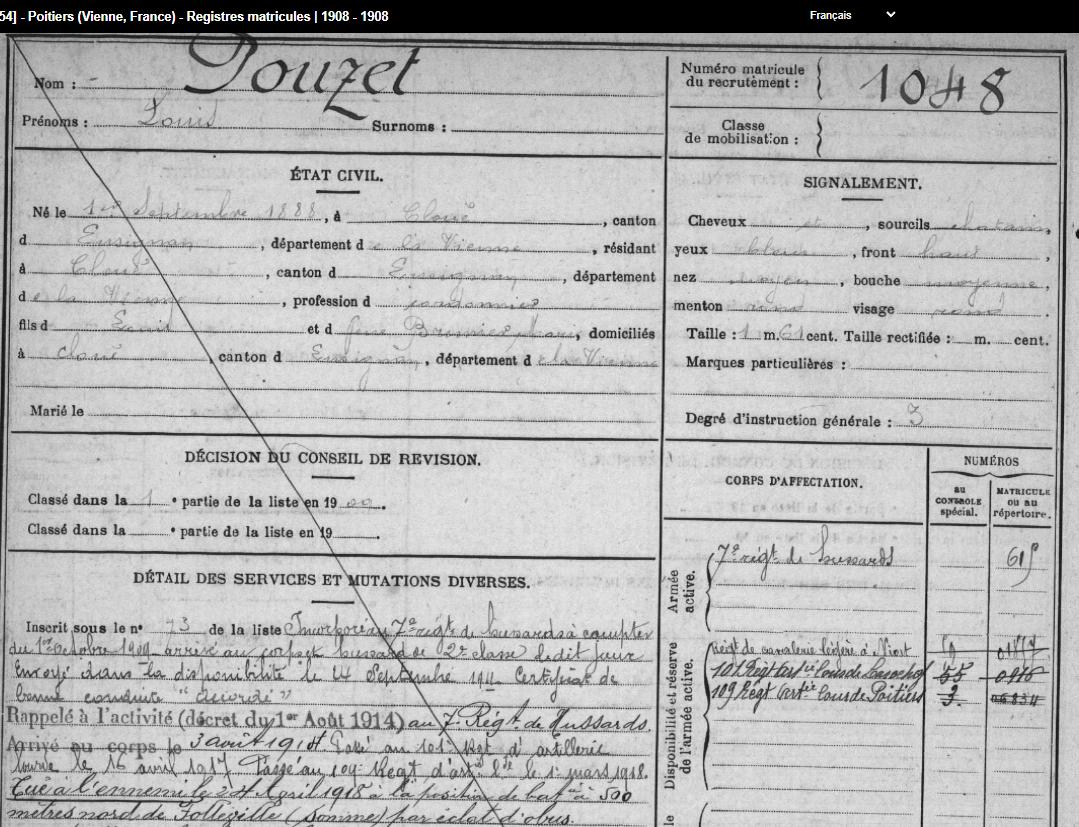 54] - Poitiers (Vienne, France) - Registres matricules | 1908 - 1908
Français
Nom : Pouzet
Prénoms : Louis Surnoms :
Numéro matricule du recrutement : 1048
Classe de mobilisation :
ÉTAT CIVIL.
Né le 1er Septembre 1888, à Cloué, canton
d , département de la Vienne, résidant
à Cloué, canton d , département
de la Vienne, profession d cordonnier
fils d et d , domiciliés
à Cloué canton d , département de la Vienne
Marié le
SIGNALEMENT.
Cheveux et , sourcils chatains,
yeux bleus, front haut,
nez moyen, bouche moyenne,
menton rond visage rond.
Taille : 1 m. 61 cent. Taille rectifiée : m. cent.
Marques particulières :
Degré d'instruction générale : 3
DÉCISION DU CONSEIL DE REVISION.
Classé dans la 1 e partie de la liste en 1909.
Classé dans la e partie de la liste en 19 .
DÉTAIL DES SERVICES ET MUTATIONS DIVERSES.
Inscrit sous le n° 73 de la liste Incorporé au 7e régt de hussards à compter
du 1er Octobre 1909 arrivé au corps et hussard de 2e classe le dit jour
Envoyé dans la disponibilité le 24 Septembre 191 Certificat de
bonne conduite "Accordé"
Rappelé à l'activité (décret du 1er Août 1914) au 7e Régt de Hussards.
Arrivé au corps le 3 août 1914 Passé au 101e Rgt d'artillerie
lourde le 16 avril 1917 Passé au 109e Regt d'artie lde le 1er mars 1918.
Tué à l'ennemi le 24 April 1918 à la position de batie à 500
mètres nord de Folleville (Somme) par éclat d'obus.
CORPS D'AFFECTATION.
NUMÉROS
au CONTROLE spécial.
MATRICULE ou au répertoire.
Armée active.
7e régt de hussards
Disponibilité et réserve de l'armée active.
Régt de cavalerie légère à Niort
101 Régt Artie Lourde 55
109 Régt Artie Lourde Poitiers 3.
le